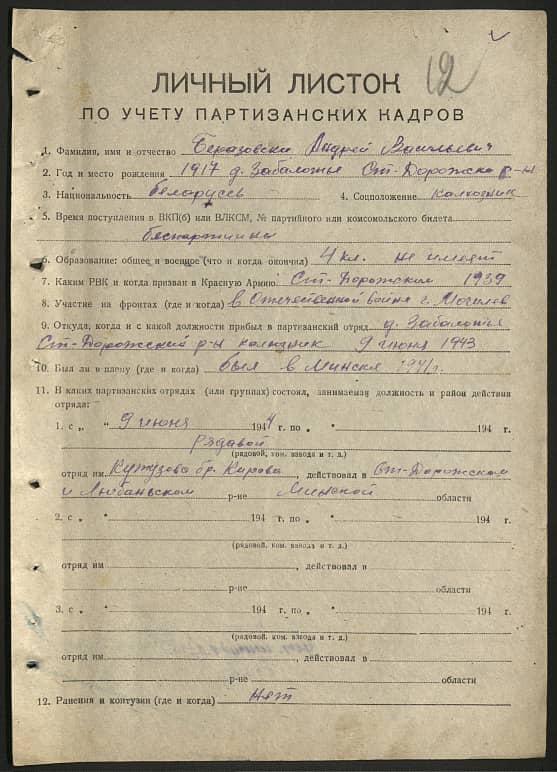 12
ЛИЧНЫЙ ЛИСТОК
ПО УЧЕТУ ПАРТИЗАНСКИХ КАДРОВ
1. Фамилия, имя и отчество Беказовски Андрей Васильевич
2. Год и место рождения 1917 д. Забалотье Ст-Дорожска р-н
3. Национальность беларусь 4. Соцположение калхозник
5. Время поступления в ВКП(б) или ВЛКСМ, № партийного или комсомольского билета
беспартийна
6. Образование: общее и военное (что и когда окончил) 4 кл. не имеет
7. Каким РВК и когда призван в Красную Армию Ст-Дорожским 1939
8. Участие на фронтах (где и когда) в Отечественной войне г. Могилев
9. Откуда, когда и с какой должности прибыл в партизанский отряд д. Забалотье
Ст-Дорожский р-н калхозник 9 июня 1943
10. Был ли в плену (где и когда) был в Минске 1941г.
11. В каких партизанских отрядах (или группах) состоял, занимаемая должность и район действия
отряда:
1. с „ “ 9 июня 1944 г. по „ “ 194 г.
рядавой
(рядовой, ком. взвода и т. д.)
отряд им. Кутузова бр. Кирова, действовал в Ст-Дорожском
и Любаньском р-не Минской области
2. с „ “ 194 г. по „ “ 194 г.
(рядовой, ком. взвода и т. д.)
отряд им , действовал в
р-не области
3. с „ “ 194 г. по „ “ 194 г.
(рядовой, ком. взвода и т. д.)
отряд им. действовал в
р-не области
12. Ранения и контузии (где и когда) нет